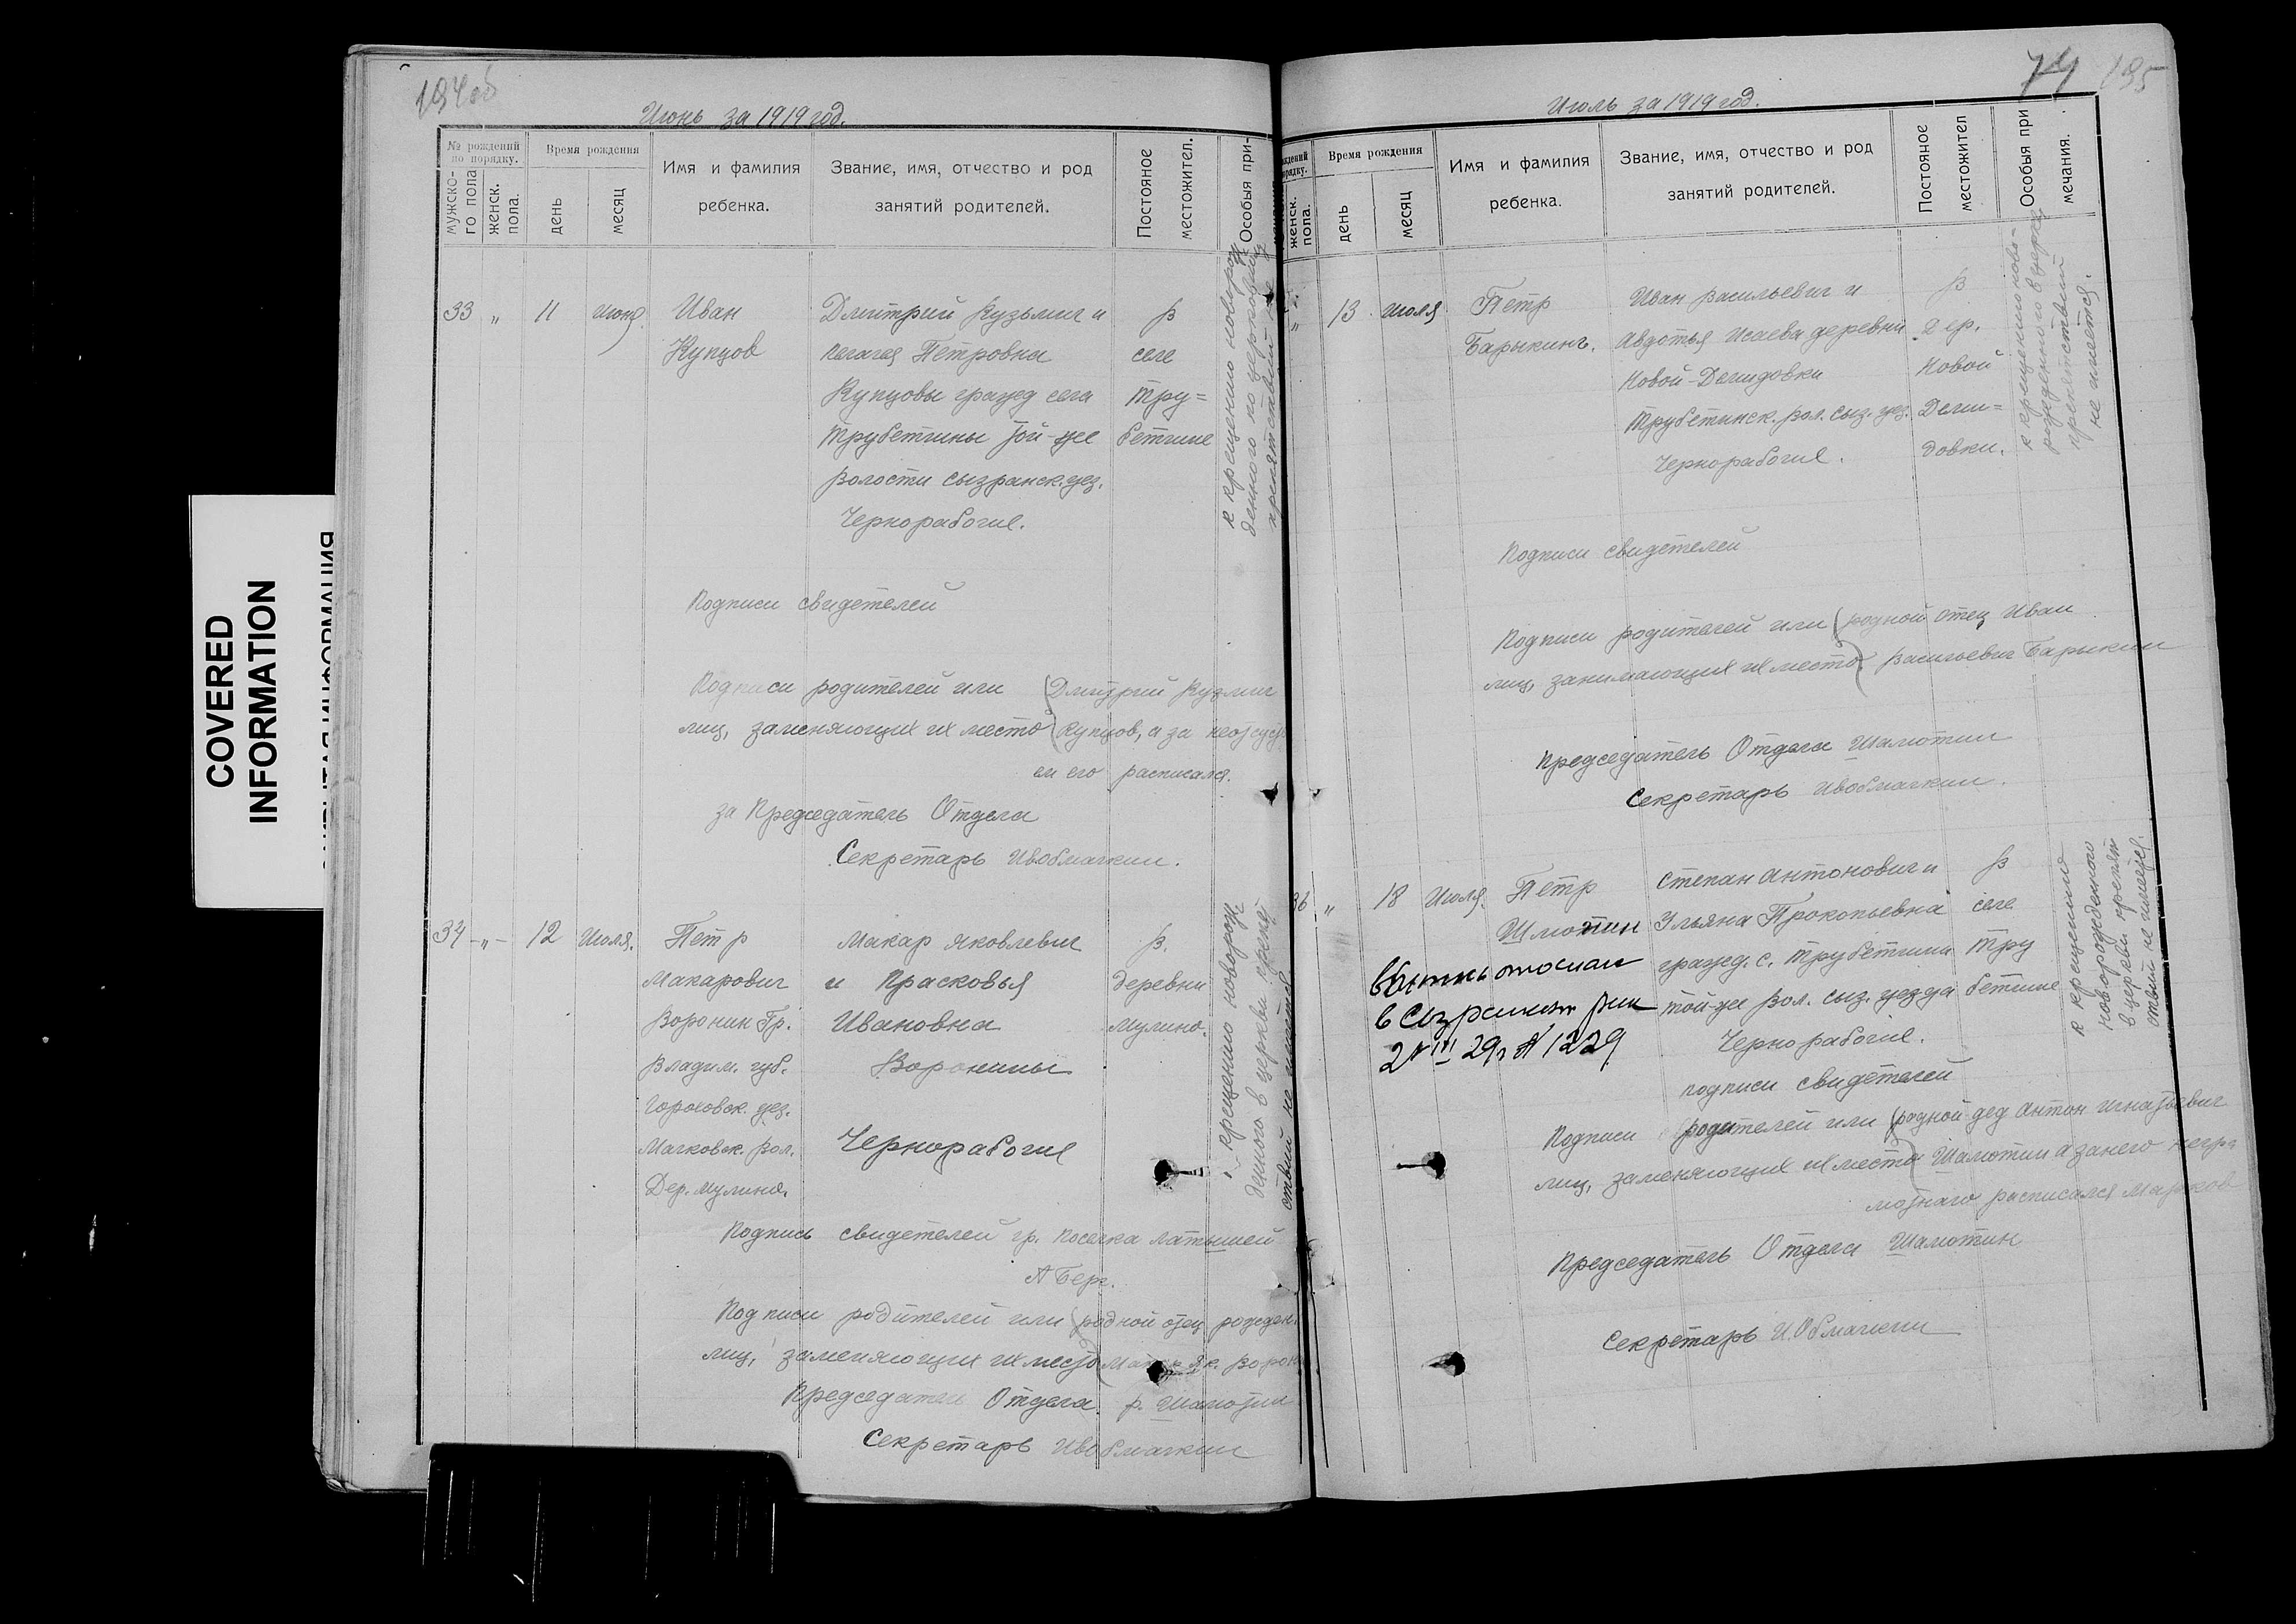 194об
Июнь за 1919 год.
№ рождений по порядку.
мужско-го пола
женск. пола.
Время рождения
день
месяц
Имя и фамилия ребенка.
Звание, имя, отчество и род занятий родителей.
Постояное местожител.
Особыя при-
33 „ 11 июня Иван Дмитрий Кузьмич и В
Купцов Пелагея Петровна селе
Купцовы гражд села Тру=
Трубетчины той-же бетчине
волости сызранск. уез.
Чернорабочие.
к крещению новорож
денного по церковному
препятствий не
Подписи свидетелей
Подписи родителей или (Дмитрий Кузмич
лиц, заменяющих их место Купцов, а за
его расписался.
за Председатель Отдела
Секретарь Ивобмачкин.
34 -„- 12 Июля. Петр Макар Яковлевич В.
Макарович и Прасковья деревни
Воронин Гр. Ивановна Мулино.
Владим. губ. Воронины
Гороховск. уез.
Мачковск. вол. Чернорабочие
Дер. Мулино.
к крещению новорож
денного в церкви препят
ствий не имеется
Подпись свидетелей гр. поселка латышей
А Берг.
Подписи родителей или (родной отец рожден.
лиц, заменяющих их место Як. Ворон
Председатель Отдела. Шамотин
Секретарь Ивобмачкин
74 195
Июль за 1919 год.
женск. пола.
Время рождения
день
месяц
Имя и фамилия ребенка.
Звание, имя, отчество и род занятий родителей.
Постояное местожител
Особыя при мечания.
„ 13 июля Петр Иван Васильевич и В
Барыкинъ. Авдотья Исаева деревни Дер.
Новой-Демидовки Новой
Трубетинск. вол. сыз. уез. Деми=
Чернорабочие. довки.
к крещению ново-
рожденного в церкв
препятствий
не имеется.
Подписи свидетелей
Подписи родителей или (родной отец Иван
лиц, занимающих их место) Васильевич Барыкин
Председатель Отдела Шамотин
Секретарь Ивобмачкин.
36 „ 18 Июля. Петр Степан Антонович и В
Шмотин Ульяна Прокопьевна селе
гражд. с. Трубетчины Тру
той-же вол. сыз. уезда бетчине
Чернорабочие.
отослан
в Сызран
29г № 1229
к крещению
новорожденного
в церкви препят
ствий не имеется.
подписи свидетелей
Подписи родителей или (родной дед Антон Игнатьевич
лиц, заменяющих их место) Шамотин а за него негра
мотнаго расписался Марков
Председатель Отдела Шамотин
Секретарь И. Обмачкин
COVERED
INFORMATION